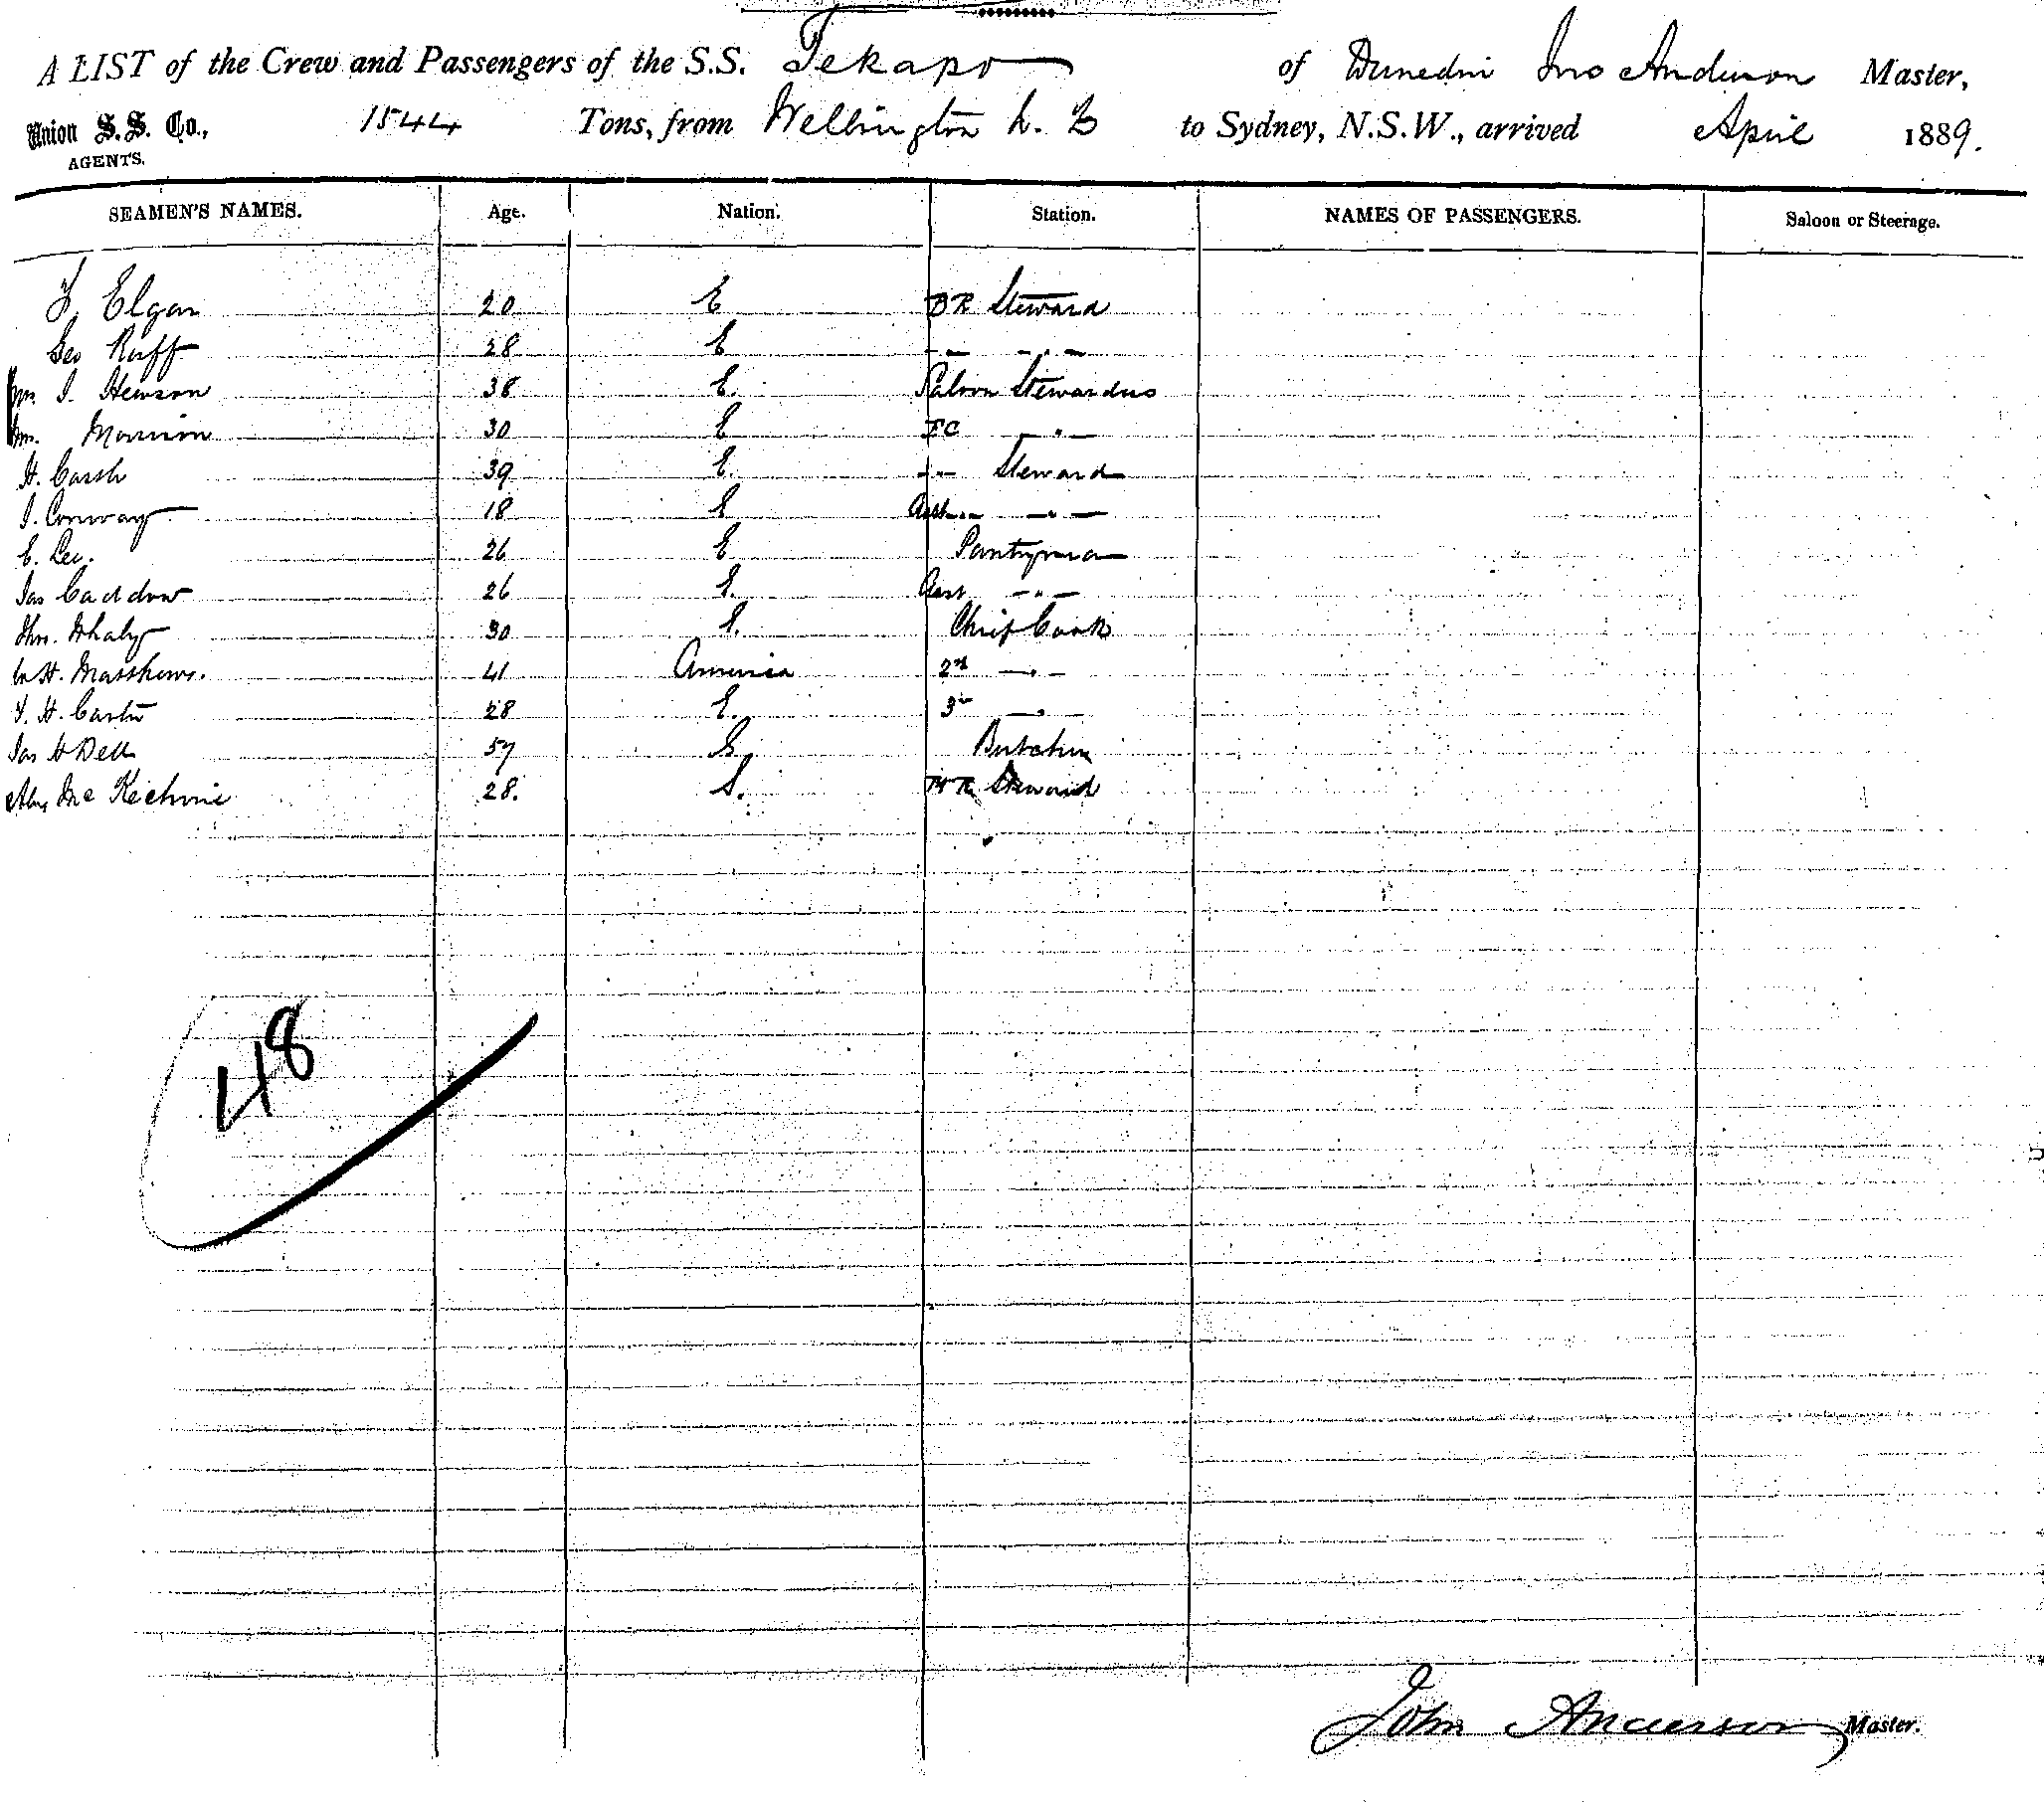 A LIST of the Crew and Passengers of the S.S. Tekapo of Dunedin Jno Anderson Master,
Union S.S. Co., AGENTS. 1544 Tons, from Wellington N. Z to Sydney, N.S.W., arrived April 1889.
SEAMEN'S NAMES. Age. Nation. Station. NAMES OF PASSENGERS. Saloon or Steerage.
Elgar 20 E BR Steward
Geo Ruff 28 E -"- -"-
Mrs. J. Hewson 38 E. Saloon Stewardess
Mrs. Morrison 30 E FC -"-
H. Cassh 39 E. -"- Steward
J. Conway 18 E -"-
E. Lee. 26 E Pantryman
Jas Caddow 26 E. Asst -"-
Thos. Whaly 30 E. Chief Cook
W H. Matthews. 41 America 2nd -"-
T. H. Carter 28 E. 3rd -"-
Jas O'Dell 57 E. Butcher
Alex McKechnie 28. S. Steward
48
John Anderson Master.